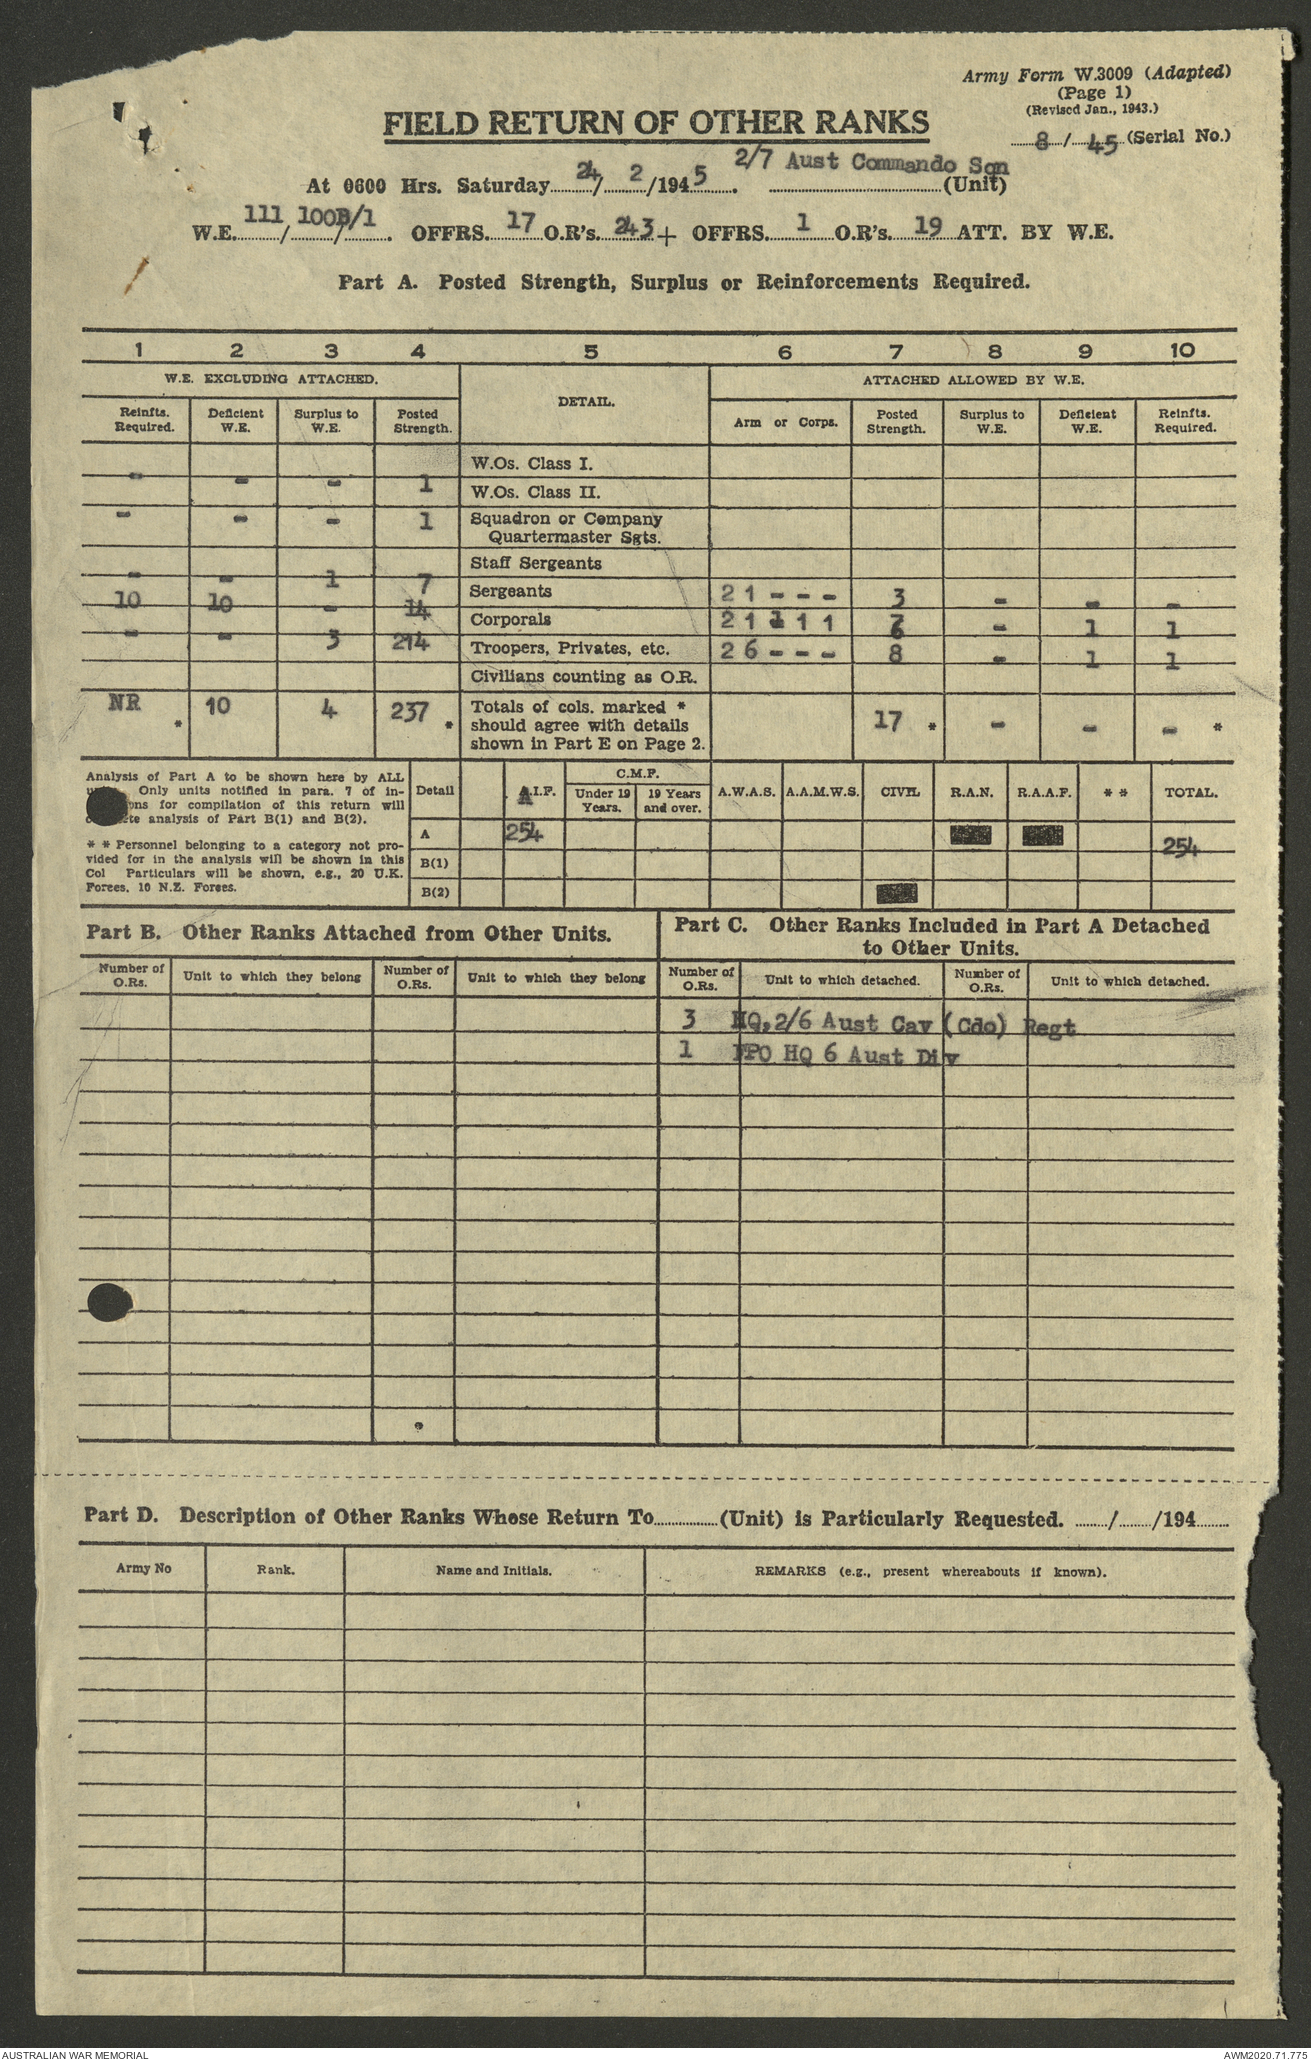 Army Form W.3009 (Adapted)
(Page 1)
(Revised Jan., 1943.)
8/45 (Serial No.)
FIELD RETURN OF OTHER RANKS
2/7 Aust Commando Sqn
At 0600 Hrs. Saturday 24/2/1945. (Unit)
W.E. 111/100B/1. OFFRS. 17 O.R's. 243 + OFFRS. 1 O.R's. 19 ATT. BY W.E.
Part A. Posted Strength, Surplus or Reinforcements Required.
1 2 3 4 5 6 7 8 9 10
W.E. EXCLUDING ATTACHED. DETAIL. ATTACHED ALLOWED BY W.E.
Reinfts. Required. Deficient W.E. Surplus to W.E. Posted Strength. Arm or Corps. Posted Strength. Surplus to W.E. Deficient W.E. Reinfts. Required.
W.Os. Class I.
- - - 1 W.Os. Class II.
- - - 1 Squadron or Company
Quartermaster Sgts.
Staff Sergeants
- - 1 7 Sergeants 2 1 - - - 3 - - -
10 10 - 14 Corporals 2 1 1 1 1 6 - 1 1
- - 3 214 Troopers, Privates, etc. 2 6 - - - 8 - 1 1
Civilians counting as O.R.
NR * 10 4 237 * Totals of cols. marked * 17 * - - - *
should agree with details
shown in Part E on Page 2.
Analysis of Part A to be shown here by ALL
Only units notified in para. 7 of in-
ons for compilation of this return will
te analysis of Part B(1) and B(2).
* * Personnel belonging to a category not pro-
vided for in the analysis will be shown in this
Col Particulars will be shown, e.g., 20 U.K.
Forces, 10 N.Z. Forces.
Detail A.I.F. C.M.F. Under 19 Years. 19 Years and over. A.W.A.S. A.A.M.W.S. CIVIL R.A.N. R.A.A.F. * * TOTAL.
A 254 254
B(1)
B(2)
Part B. Other Ranks Attached from Other Units.
Part C. Other Ranks Included in Part A Detached
to Other Units.
Number of O.Rs. Unit to which they belong Number of O.Rs. Unit to which they belong Number of O.Rs. Unit to which detached. Number of O.Rs. Unit to which detached.
3 HQ, 2/6 Aust Cav (Cdo) Regt
1 FPO HQ 6 Aust Div
Part D. Description of Other Ranks Whose Return To (Unit) is Particularly Requested. / /194
Army No Rank. Name and Initials. REMARKS (e.g., present whereabouts if known).
AUSTRALIAN WAR MEMORIAL AWM2020.71.775